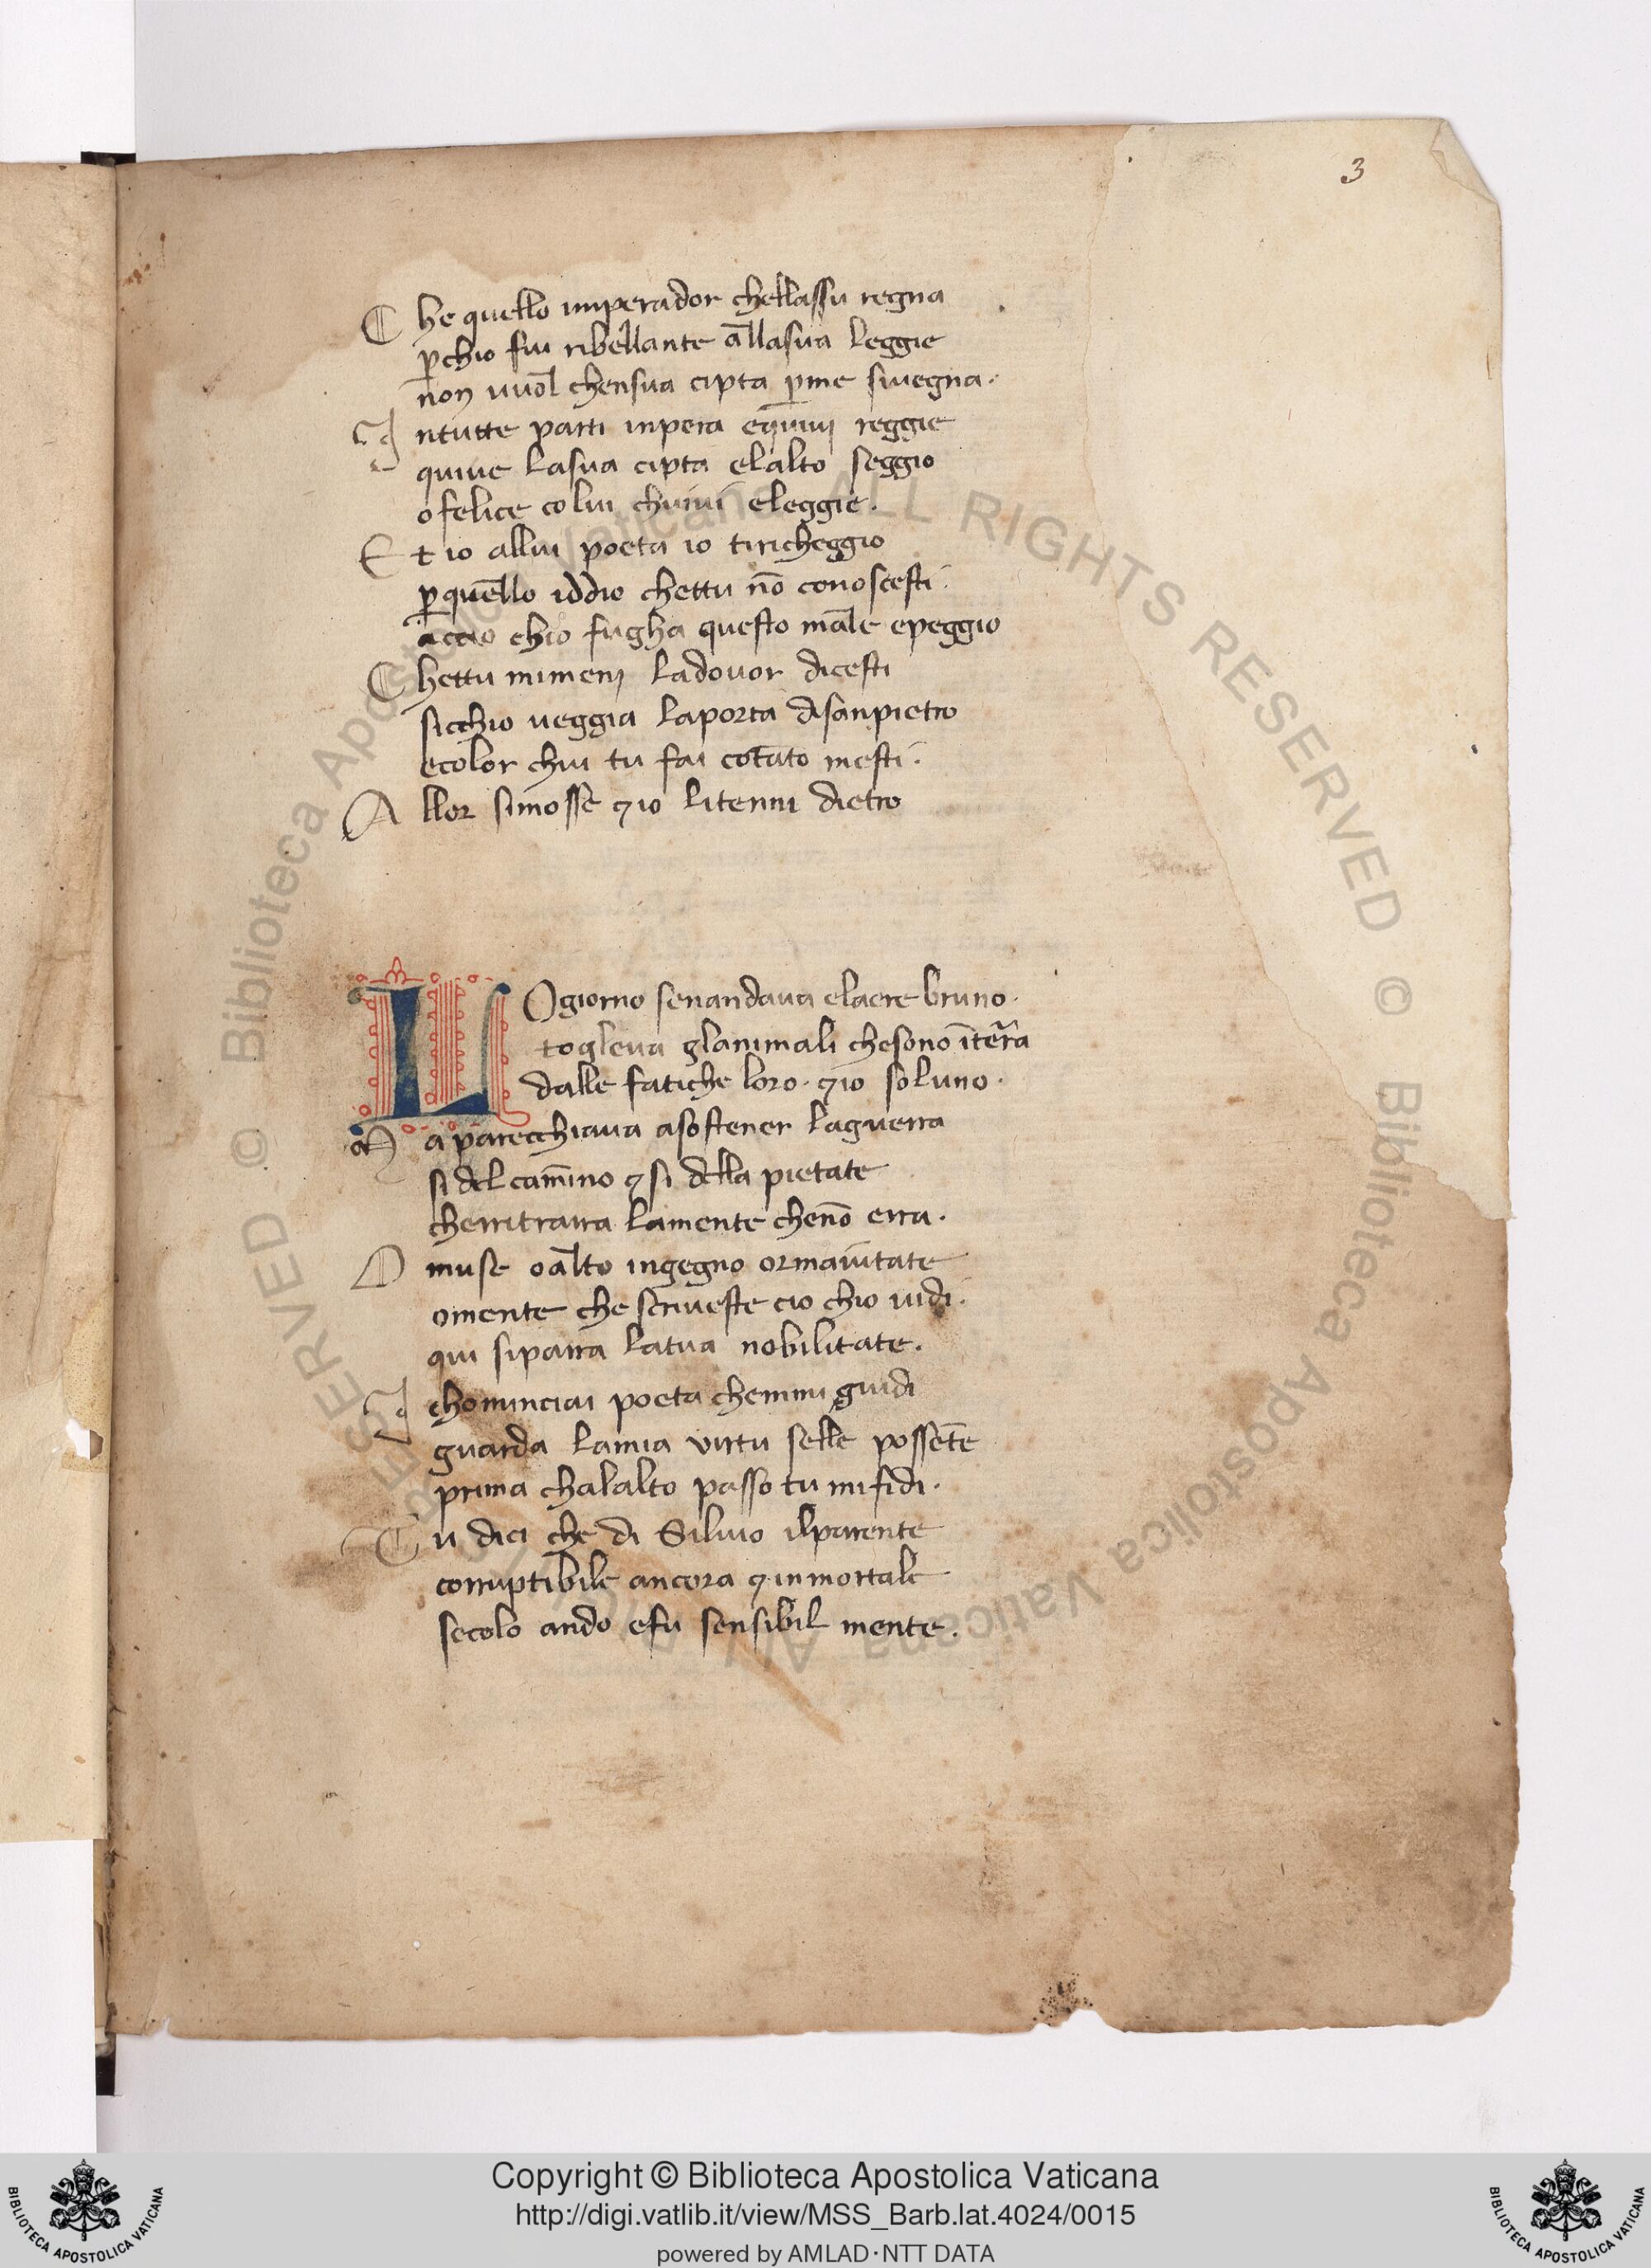 3
C he quello imperador chellassu regna
p̄chio fui ribellante allasua leggie
non vuol chensua cipta p̄me siuegna.
I ntutte parti inpera equiuj reggie
quiue lasua cipta elalto seggio
o felice colui chuiui eleggie.
E t io allui poeta io tiricheggio
p̄ quello iddio chettu nō conoscesti.
accio chio fugha questo male epeggio
C hettu mimenj ladouor dicesti
sicchio ueggia laporta disanpietro
ecolor chui tu fai cotāto mesti.
A llor simosse ⁊ io litenni dietro
L O giorno senandaua elaere bruno.
togleua glanimali chesono īterra
dalle fatiche loro. ⁊ io soluno.
M aparecchiaua asostener laguerra
si del camino ⁊ si della pietate
cherritrarra lamente chenō erra.
O muse o alto ingegno ormaiutate
omente che scriueste cio chio uidi.
qui siparra latua nobilitate.
I chominciai poeta chemmi guidi
guarda lamia virtu selle possēte
prima chalalto passo tu mifidi.
T u dici che di Siluio ilparente
corruptibile ancora ⁊ inmortale
secolo ando efu sensibil mente.
© Biblioteca Apostolica Vaticana ALL RIGHTS RESERVED © Biblioteca Apostolica Vaticana ALL RIGHTS RESERVED
Copyright © Biblioteca Apostolica Vaticana
http://digi.vatlib.it/view/MSS_Barb.lat.4024/0015
powered by AMLAD·NTT DATA
BIBLIOTECA APOSTOLICA VATICANA
BIBLIOTECA APOSTOLICA VATICANA